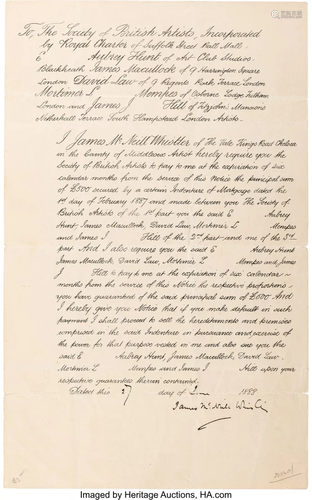 To, The Society of British Artists, Incorporated
by Royal Charter of Suffolk Street Pall Mall.
E Aubrey Hunt of Art Club Studios
Blackheath James Macullock of 9 Harrington Square
London David Law of 9 Regents Park Terrace London
Mortimer L. Mempes of Osborne Lodge, Fulham
London and James J Hill of Fitzjohns Mansions
Netherhall Terrace South Hampstead London Artists.
I James Mc Neill Whistler of The Vale Kings Road Chelsea
in the County of Middlesex Artist hereby require you the
Society of British Artists to pay to me at the expiration of six
calendar months from the service of this Notice the principal sum
of £500 secured by a certain Indenture of Mortgage dated the
1st day of February 1887 and made between you The Society of
British Artists of the 1st part you the said E Aubrey
Hunt, James Macullock, David Law, Mortimer L Mempes
and James J Hill of the 2nd part and me of the 3rd
part And I also require you the said E Aubrey Hunt
James Macullock, David Law, Mortimer L Mempes and James
J Hill to pay to me at the expiration of six calendar
months from the service of this Notice the respective proportions
you have guaranteed of the said principal sum of £500 And
I hereby give you Notice that if you make default in such
payment I shall proceed to sell the hereditaments and premises
comprised in the said Indenture in pursuance and exercise of
the power for that purpose vested in me and also sue you the
said E Aubrey Hunt, James Macullock, David Law
Mortimer L Mempes and James J Hill upon your
respective guarantees therein contained.
Dated this 27 day of June 1888
James McNeill Whistler
Imaged by Heritage Auctions, HA.com